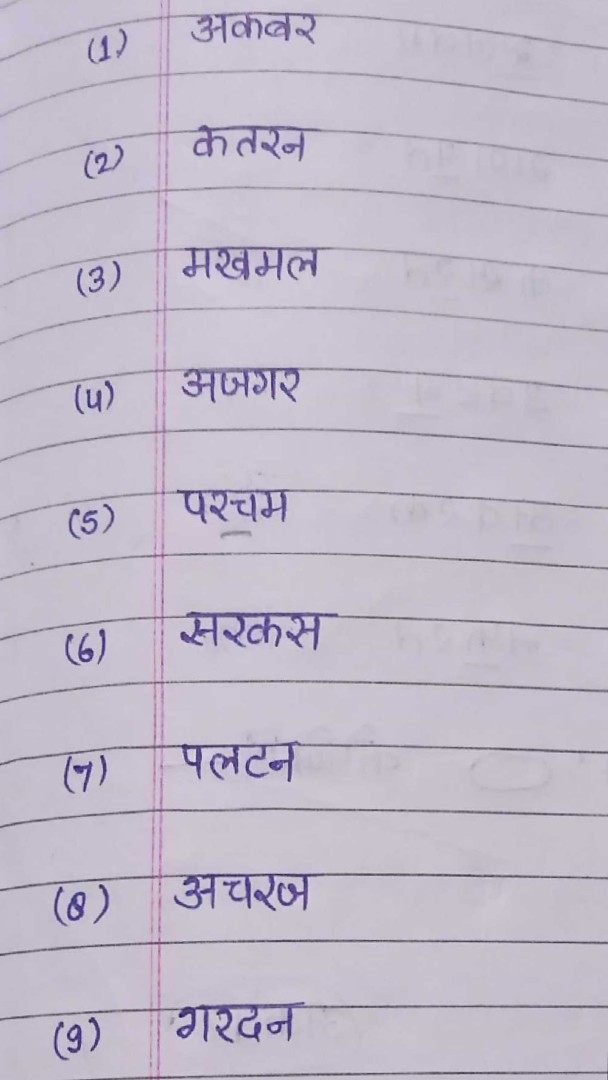 (1) अकबर
(2) कतरन
(3) मखमल
(4) अजगर
(5) परचम
(6) सरकस
(7) पलटन
(8) अचरज
(9) गरदन